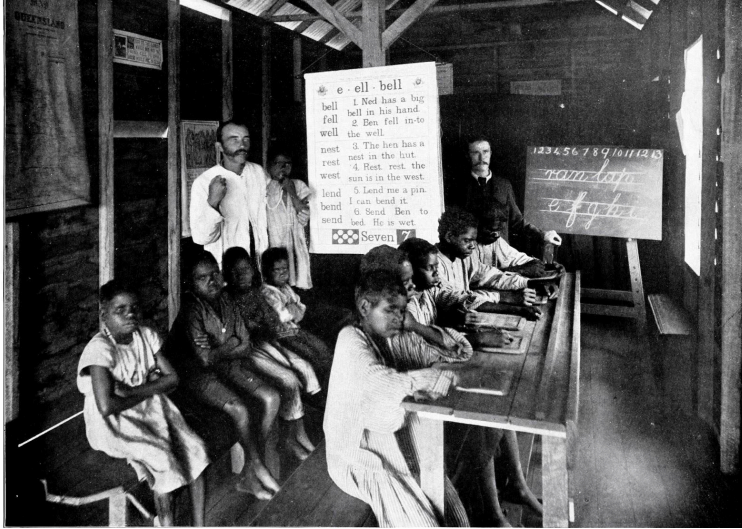 QUEENSLAND
e - ell - bell
bell
fell
well
nest
rest
west
lend
bend
send
1. Ned has a big
bell in his hand
2. Ben fell in-to
the well.
3. The hen has a
nest in the hut.
4. Rest rest the
sun is in the west.
5. Lend me a pin.
I can bend it.
6. Send Ben to
bed. He is wet.
Seven 7
1 2 3 4 5 6 7 8 9 10 11 12 13
ran lap
e f g h